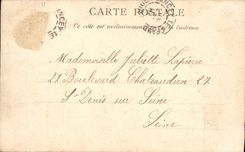 CARTE POSTALE
Ce côté est exclusivement réservé à l'adresse
Mademoiselle Juliette Lapierre
28 Boulevard Chateaudun 27
St Denis sur Seine
Seine